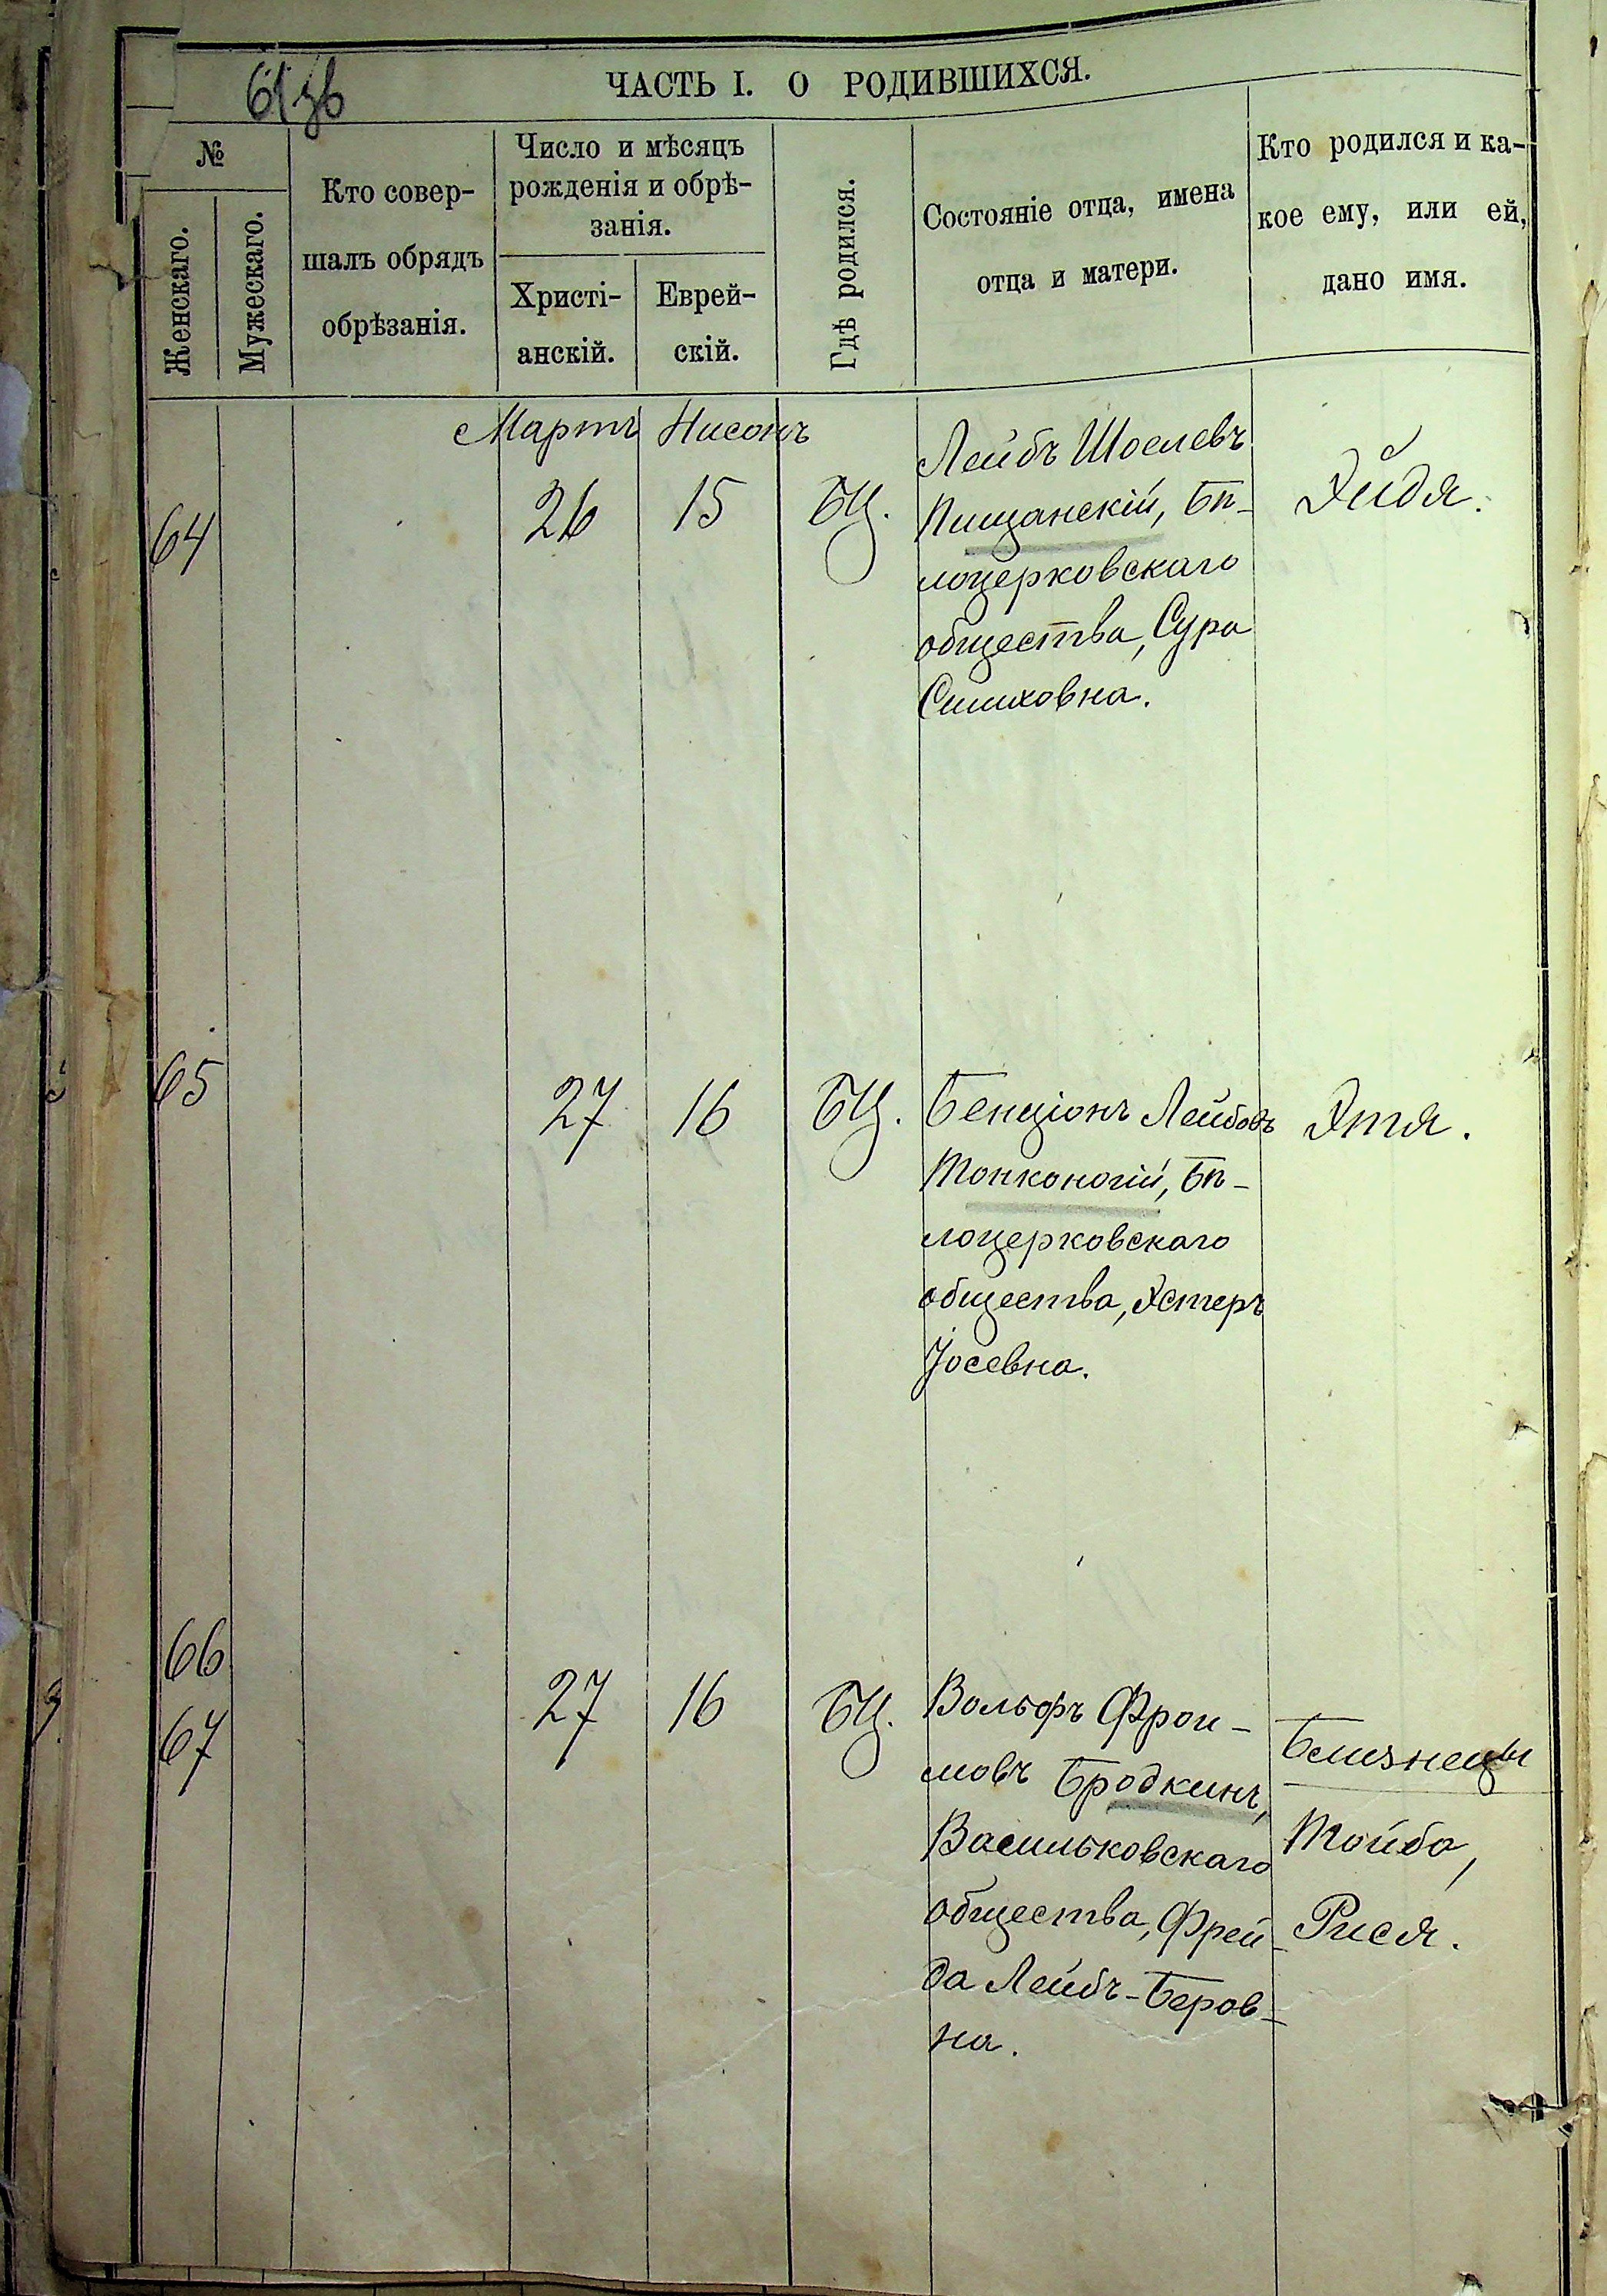 61зв
ЧАСТЬ I. О РОДИВШИХСЯ.
№
Женскаго.
Мужескаго.
Кто совер-
шалъ обрядъ
обрѣзанія.
Число и мѣсяцъ
рожденія и обрѣ-
занія.
Христі-
анскій.
Еврей-
скій.
Гдѣ родился.
Состояніе отца, имена
отца и матери.
Кто родился и ка-
кое ему, или ей,
дано имя.
Мартъ Нисонъ
64 26 15 БЦ.
Лейбъ Шоелевъ
Пищанскій, Бѣ-
лоцерковскаго
общества, Сура
Симховна.
Эйдя.
65 27 16 БЦ.
Бенціонъ Лейбовъ
Тонконогій, Бѣ-
лоцерковскаго
общества, Эстеръ
Іосевна.
Этя.
66
67
27 16 БЦ.
Вольфъ Фрои-
мовъ Бродкинъ,
Васильковскаго
общества, Фрей-
да Лейбъ-Беров-
на.
Близнецы
Тойба,
Рися.